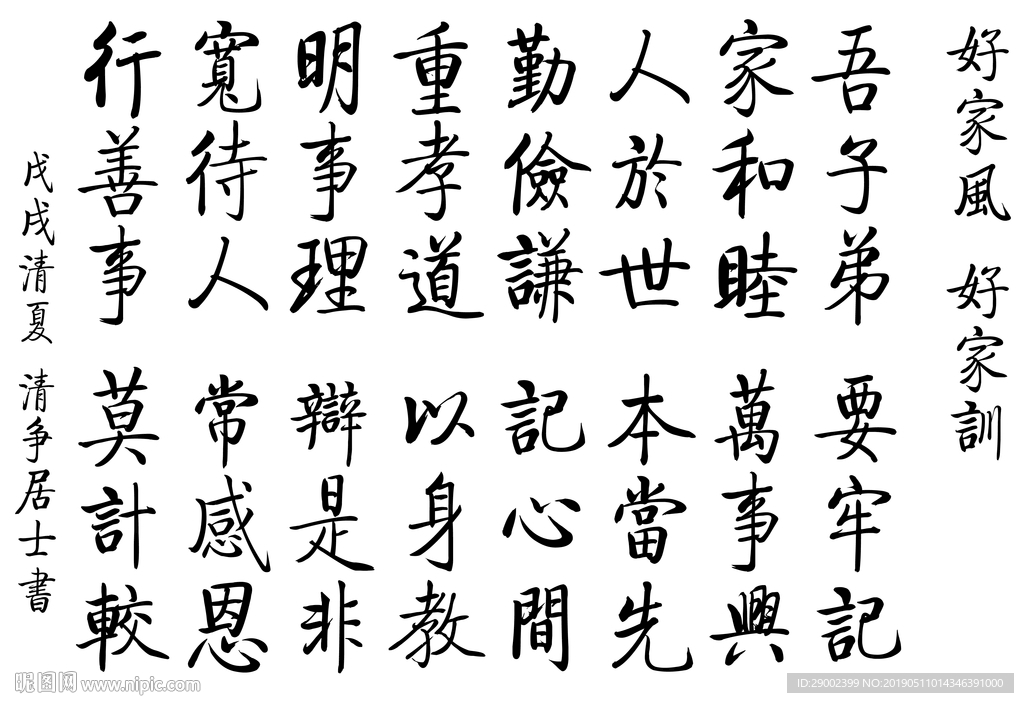 好家風 好家訓
吾子弟 要牢記
家和睦 萬事興
人於世 本當先
勤儉謙 記心間
重孝道 以身教
明事理 辯是非
寬待人 常感恩
行善事 莫計較
戊戌清夏 清争居士書
昵图网 www.nipic.com
ID:29002399 NO:20190511014346391000